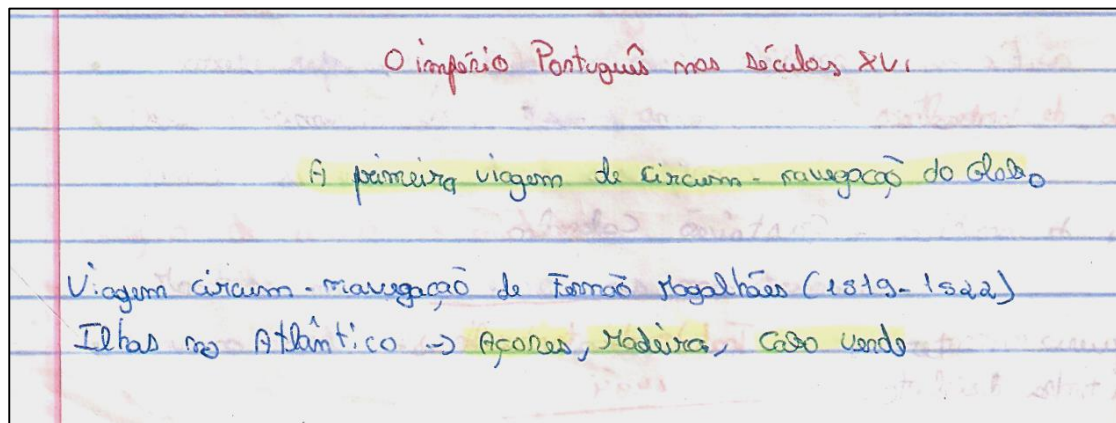 O império Português nos séculos XVI
A primeira viagem de circum-navegação do Globo
Viagem circum-navegação de Fernão Magalhães (1519-1522)
Ilhas no Atlântico -> Açores, Madeira, Cabo Verde